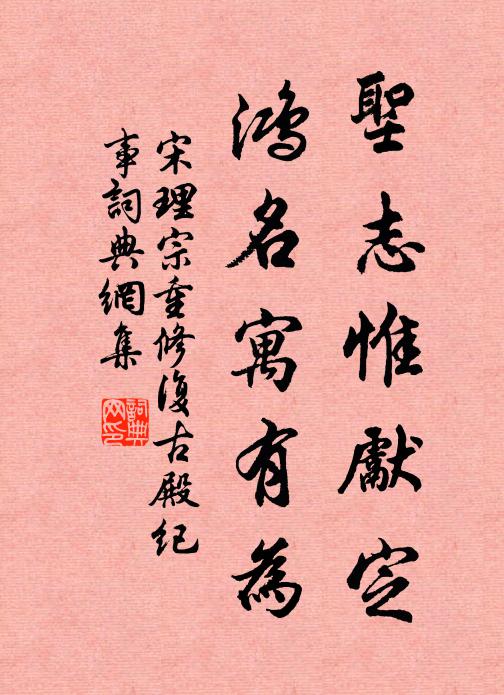 聖志惟獻定
鴻名寓有為
宋理宗重修復古殿紀
事詞典網集
詞典网印